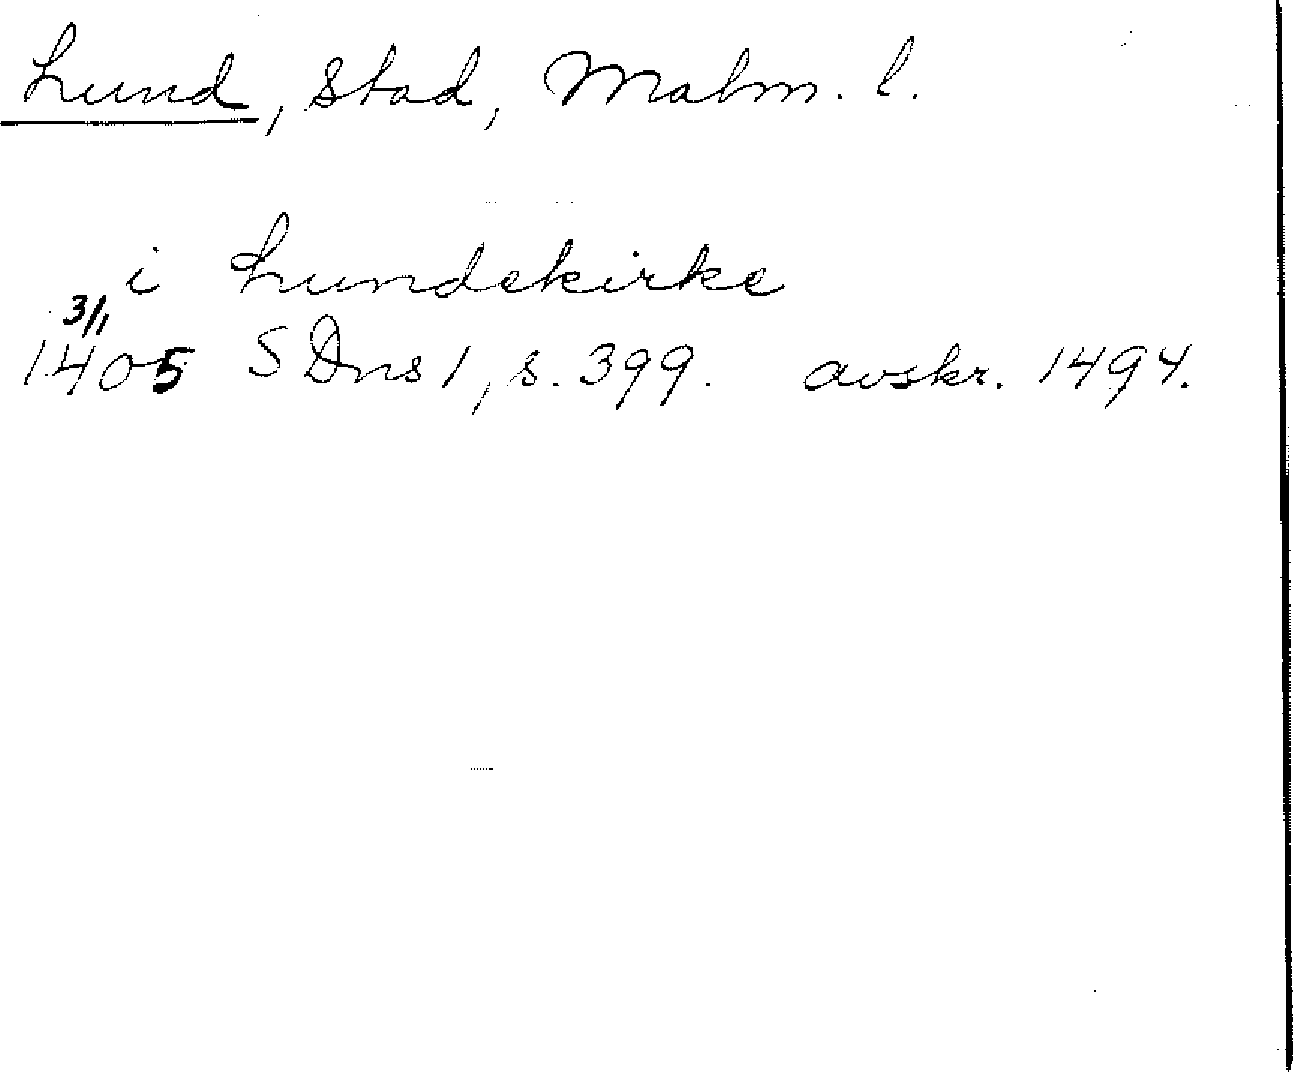 Lund, Stad, Malm. l.
i Lundekirke
3/1
1405 SDns 1, s. 399. avskr. 1494.